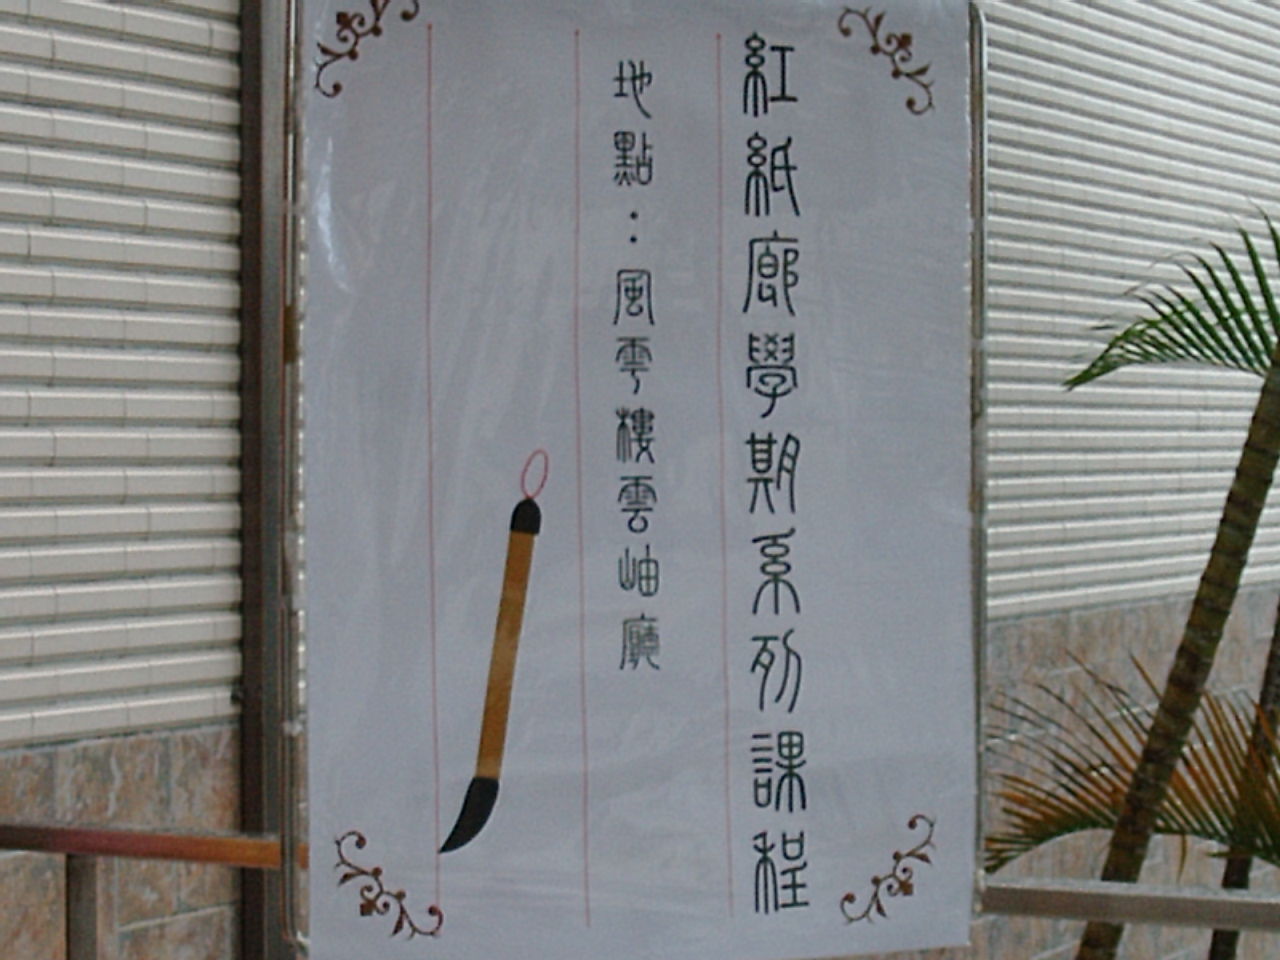 紅紙廊學期系列課程
地點：風雩樓雲岫廳